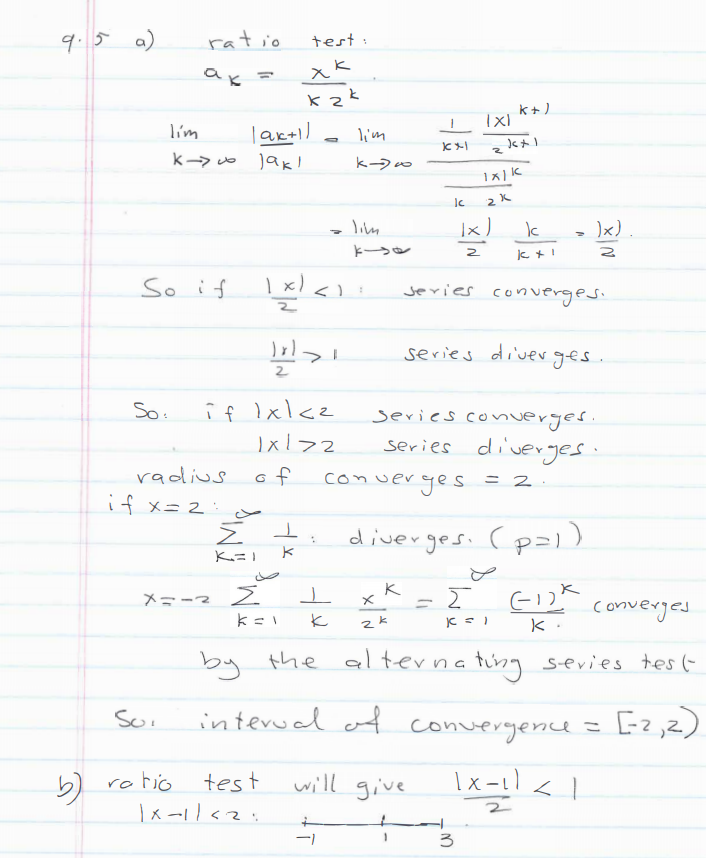 9.5 a) ratio test:
a_k = x^k / k 2^k.
lim k→∞ |a_{k+1}| / |a_k| = lim k→∞ (1/(k+1) |x|^{k+1} / 2^{k+1}) / (|x|^k / k 2^k)
= lim k→∞ |x|/2 k/(k+1) = |x|/2.
So if |x|/2 < 1: series converges.
|x|/2 > 1 series diverges.
So: if |x| < 2 series converges.
|x| > 2 series diverges.
radius of converges = 2.
if x = 2: ∑_{k=1}^∞ 1/k : diverges. (p=1)
x = -2 ∑_{k=1}^∞ 1/k x^k/2^k = ∑_{k=1}^∞ (-1)^k / k. converges
by the alternating series test
So, interval of convergence = [-2,2)
b) ratio test will give |x-1|/2 < 1
|x-1| < 2:
-1 1 3